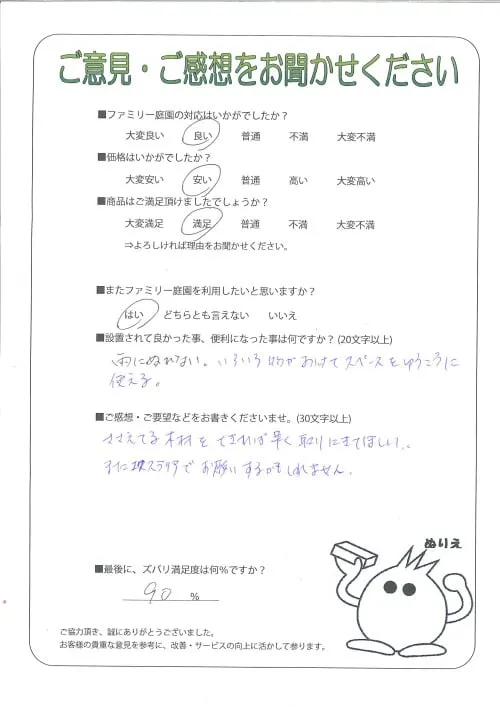 ご意見・ご感想をお聞かせください
■ファミリー庭園の対応はいかがでしたか？
大変良い 良い 普通 不満 大変不満
■価格はいかがでしたか？
大変安い 安い 普通 高い 大変高い
■商品はご満足頂けましたでしょうか？
大変満足 満足 普通 不満 大変不満
⇒よろしければ理由をお聞かせください。
■またファミリー庭園を利用したいと思いますか？
はい どちらとも言えない いいえ
■設置されて良かった事、便利になった事は何ですか？(20文字以上)
雨にぬれない。いろいろ物がおけてスペースをゆうこうに
使える。
■ご感想・ご要望などをお書きくださいませ。(30文字以上)
ささえてる木材をできれば早く取りにきてほしい。
またエクステリアでお願いするかもしれません。
ぬりえ
■最後に、ズバリ満足度は何％ですか？
90 %
ご協力頂き、誠にありがとうございました。
お客様の貴重な意見を参考に、改善・サービスの向上に活かして参ります。